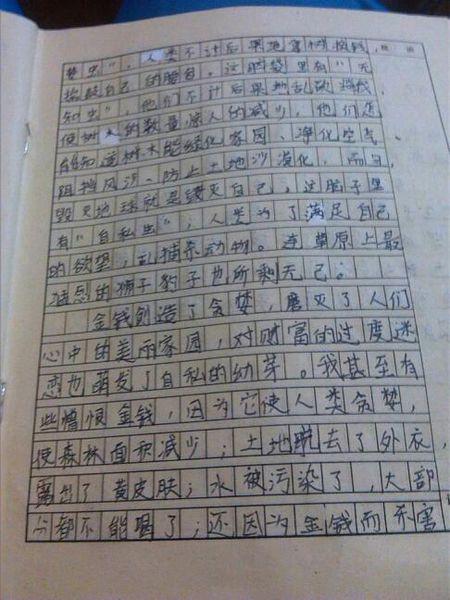 婪虫”，人类不计后果地拿树换钱，
填鼓自己的腰包。这脑袋里有“无
知虫”，他们不计后果地乱砍滥伐，
使树木的数量惊人的减少，他们怎
能知道树木能绿化家园、净化空气、
阻挡风沙、防止土地沙漠化，而且，
毁灭地球就是毁灭自己，这脑子里
有“自私虫”，人类为了满足自己
的欲望，乱捕杀动物。连草原上最
凶恶的狮子豹子也所剩无己。
金钱创造了贪婪，磨灭了人们
心中的美丽家园，对财富的过度迷
恋也萌发了自私的幼芽。我甚至有
些憎恨金钱，因为它使人类贪婪，
使森林面积减少；土地脱去了外衣，
露出了黄皮肤；水被污染了，大部
分都不能喝了；还因为金钱而杀害